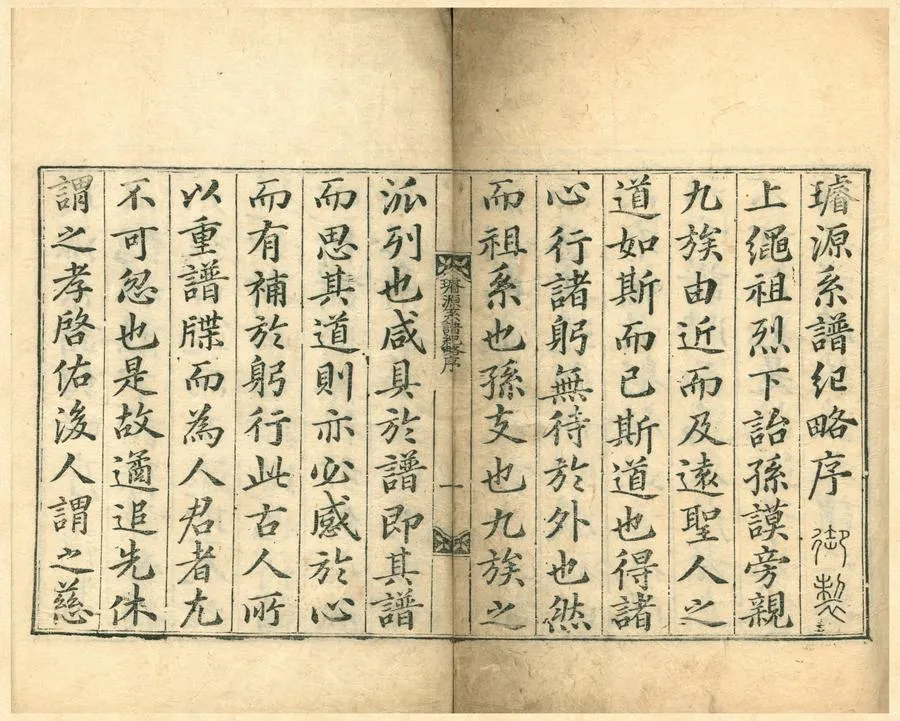 璿源系譜紀略序 御製
上繩祖烈下詒孫謨旁親
九族由近而及遠聖人之
道如斯而已斯道也得諸
心行諸躬無待於外也然
而祖系也孫支也九族之
璿源系譜紀略序 一
泒列也咸具於譜即其譜
而思其道則亦必感於心
而有補於躬行此古人所
以重譜牒而為人君者尤
不可忽也是故遹追先休
謂之孝啓佑後人謂之慈